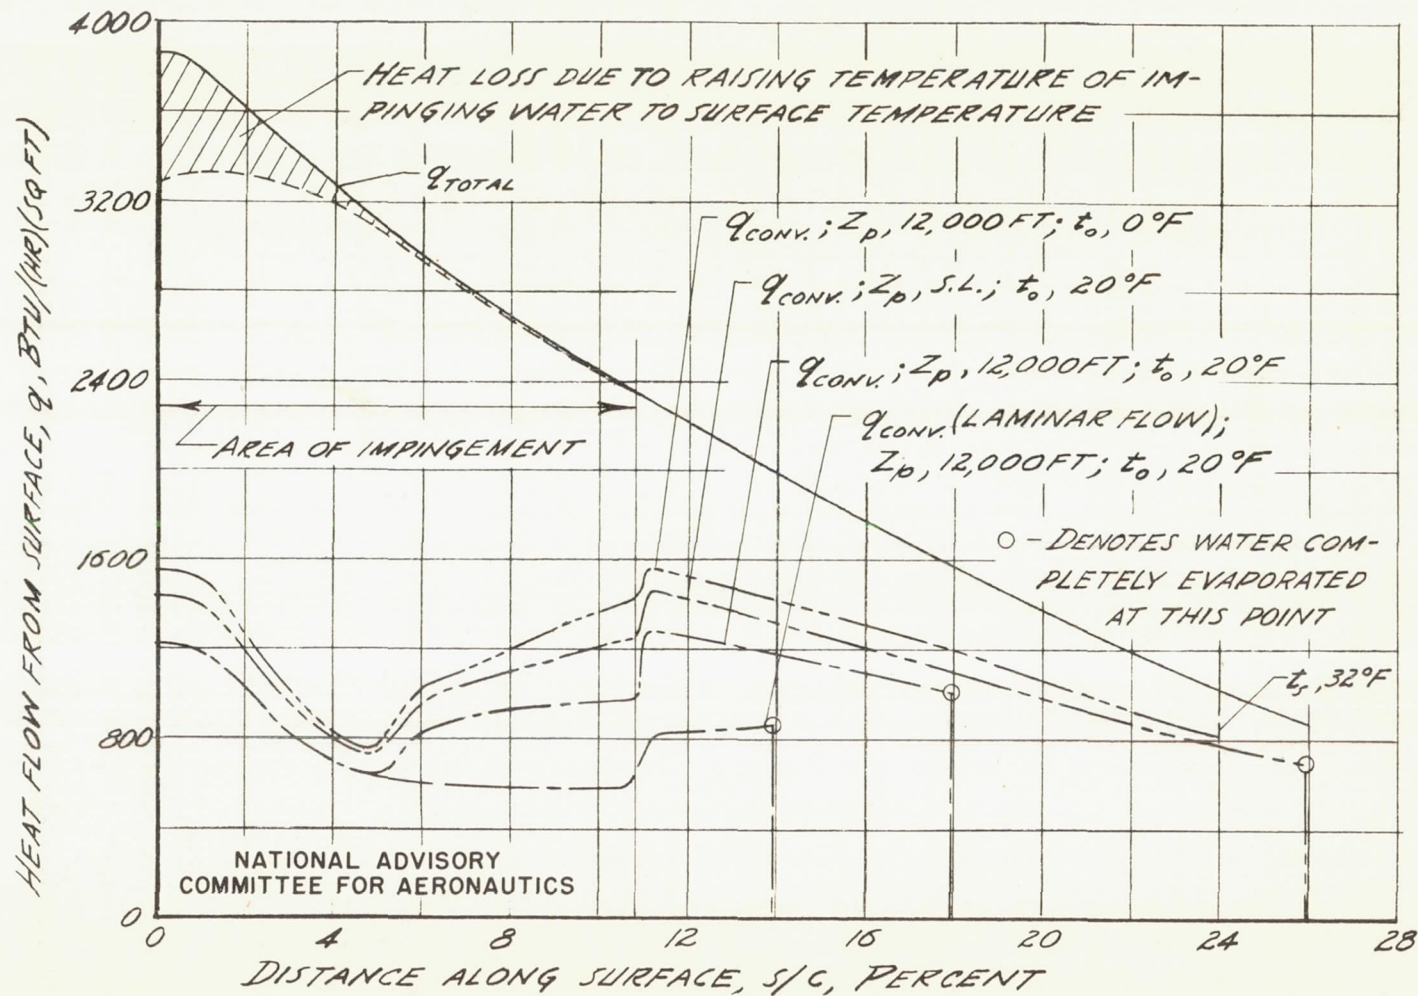 4000
3200
2400
1600
800
0
HEAT FLOW FROM SURFACE, q, BTU/(HR)(SQ FT)
HEAT LOSS DUE TO RAISING TEMPERATURE OF IM-
PINGING WATER TO SURFACE TEMPERATURE
qTOTAL
qCONV. ; Zp, 12,000 FT; to, 0°F
qCONV. ; Zp, S.L.; to, 20°F
qCONV. ; Zp, 12,000FT; to, 20°F
qCONV. (LAMINAR FLOW);
Zp, 12,000FT; to, 20°F
AREA OF IMPINGEMENT
O - DENOTES WATER COM-
PLETELY EVAPORATED
AT THIS POINT
ts, 32°F
NATIONAL ADVISORY
COMMITTEE FOR AERONAUTICS
0 4 8 12 16 20 24 28
DISTANCE ALONG SURFACE, s/c, PERCENT